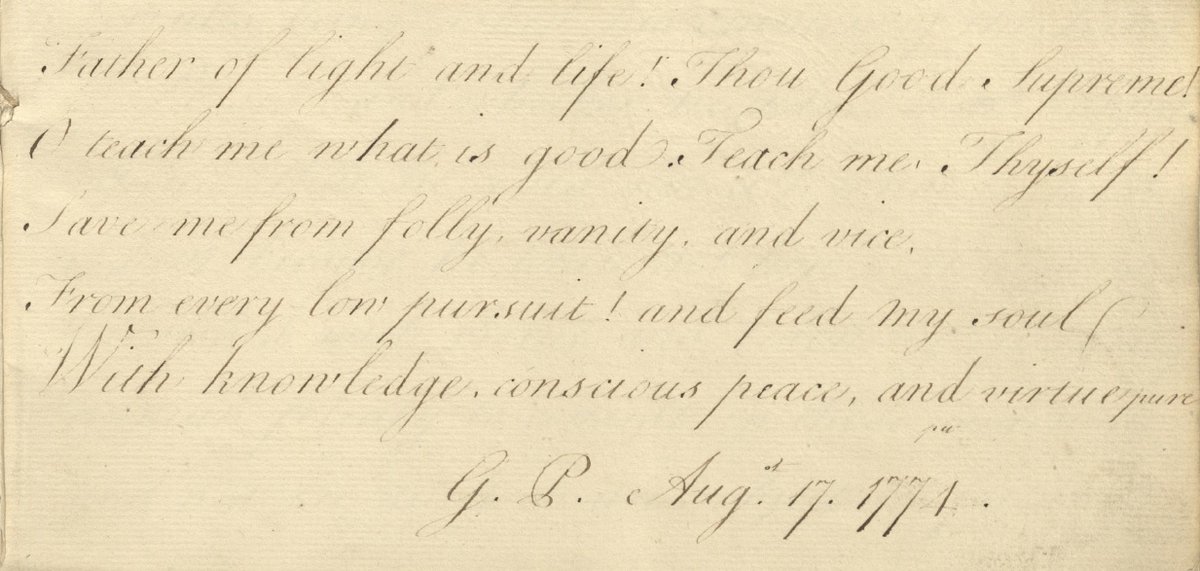 Father of light and life! Thou Good Supreme!
O teach me what is good. Teach me Thyself!
Save me from folly, vanity, and vice,
From every low pursuit! and feed my soul
With knowledge, conscious peace, and virtue pure
pu
G. P. Augst. 17. 1774.